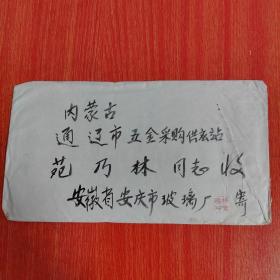 内蒙古
通辽市五金采购供应站
苑乃林同志收
安徽省安庆市玻璃厂 寄